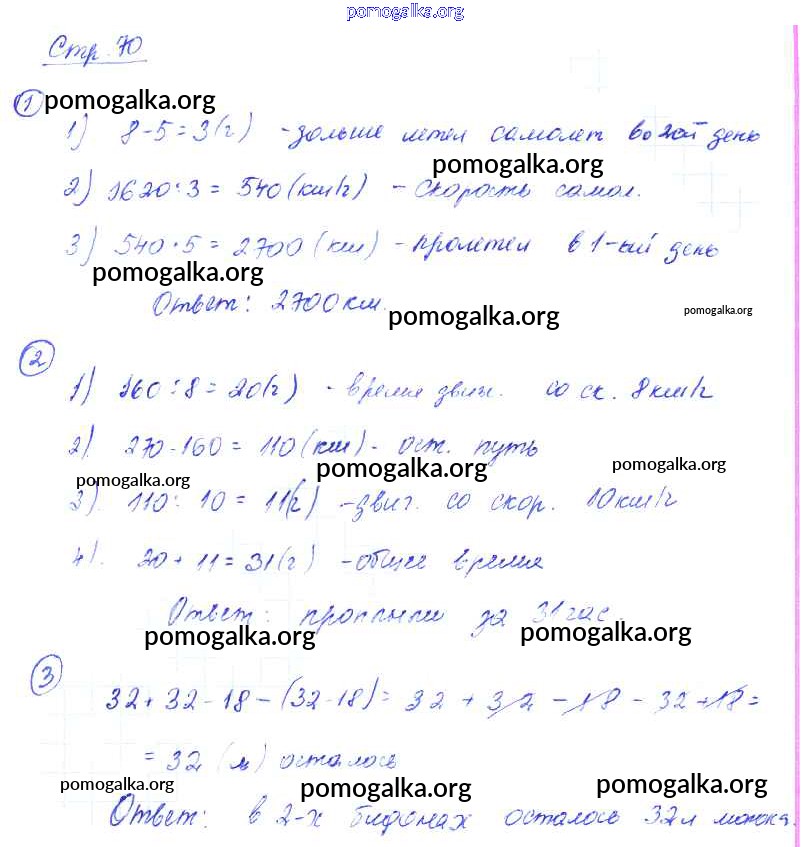 pomogalka.org
Стр. 70
1 pomogalka.org
1) 8-5=3(г) -дольше летел самолет во 2ой день
pomogalka.org
2) 1620:3 = 540(км/г) - скорость самол.
3) 540·5 = 2700 (км) - пролетел в 1-ый день
pomogalka.org
Ответ: 2700км. pomogalka.org pomogalka.org
2
1) 160:8 = 20(г) - время движ. со ск. 8км/г
2). 270-160 = 110 (км) - ост. путь
pomogalka.org pomogalka.org pomogalka.org
3). 110: 10 = 11(г) -двиг. со скор. 10км/г
4). 20+11=31(г) -общее время
Ответ: проплыли за 31 час.
pomogalka.org pomogalka.org
3
32+32-18-(32-18)= 32+32-18-32+18=
= 32 (л) осталось
pomogalka.org pomogalka.org pomogalka.org
Ответ: в 2-х бидонах осталось 32л молока.